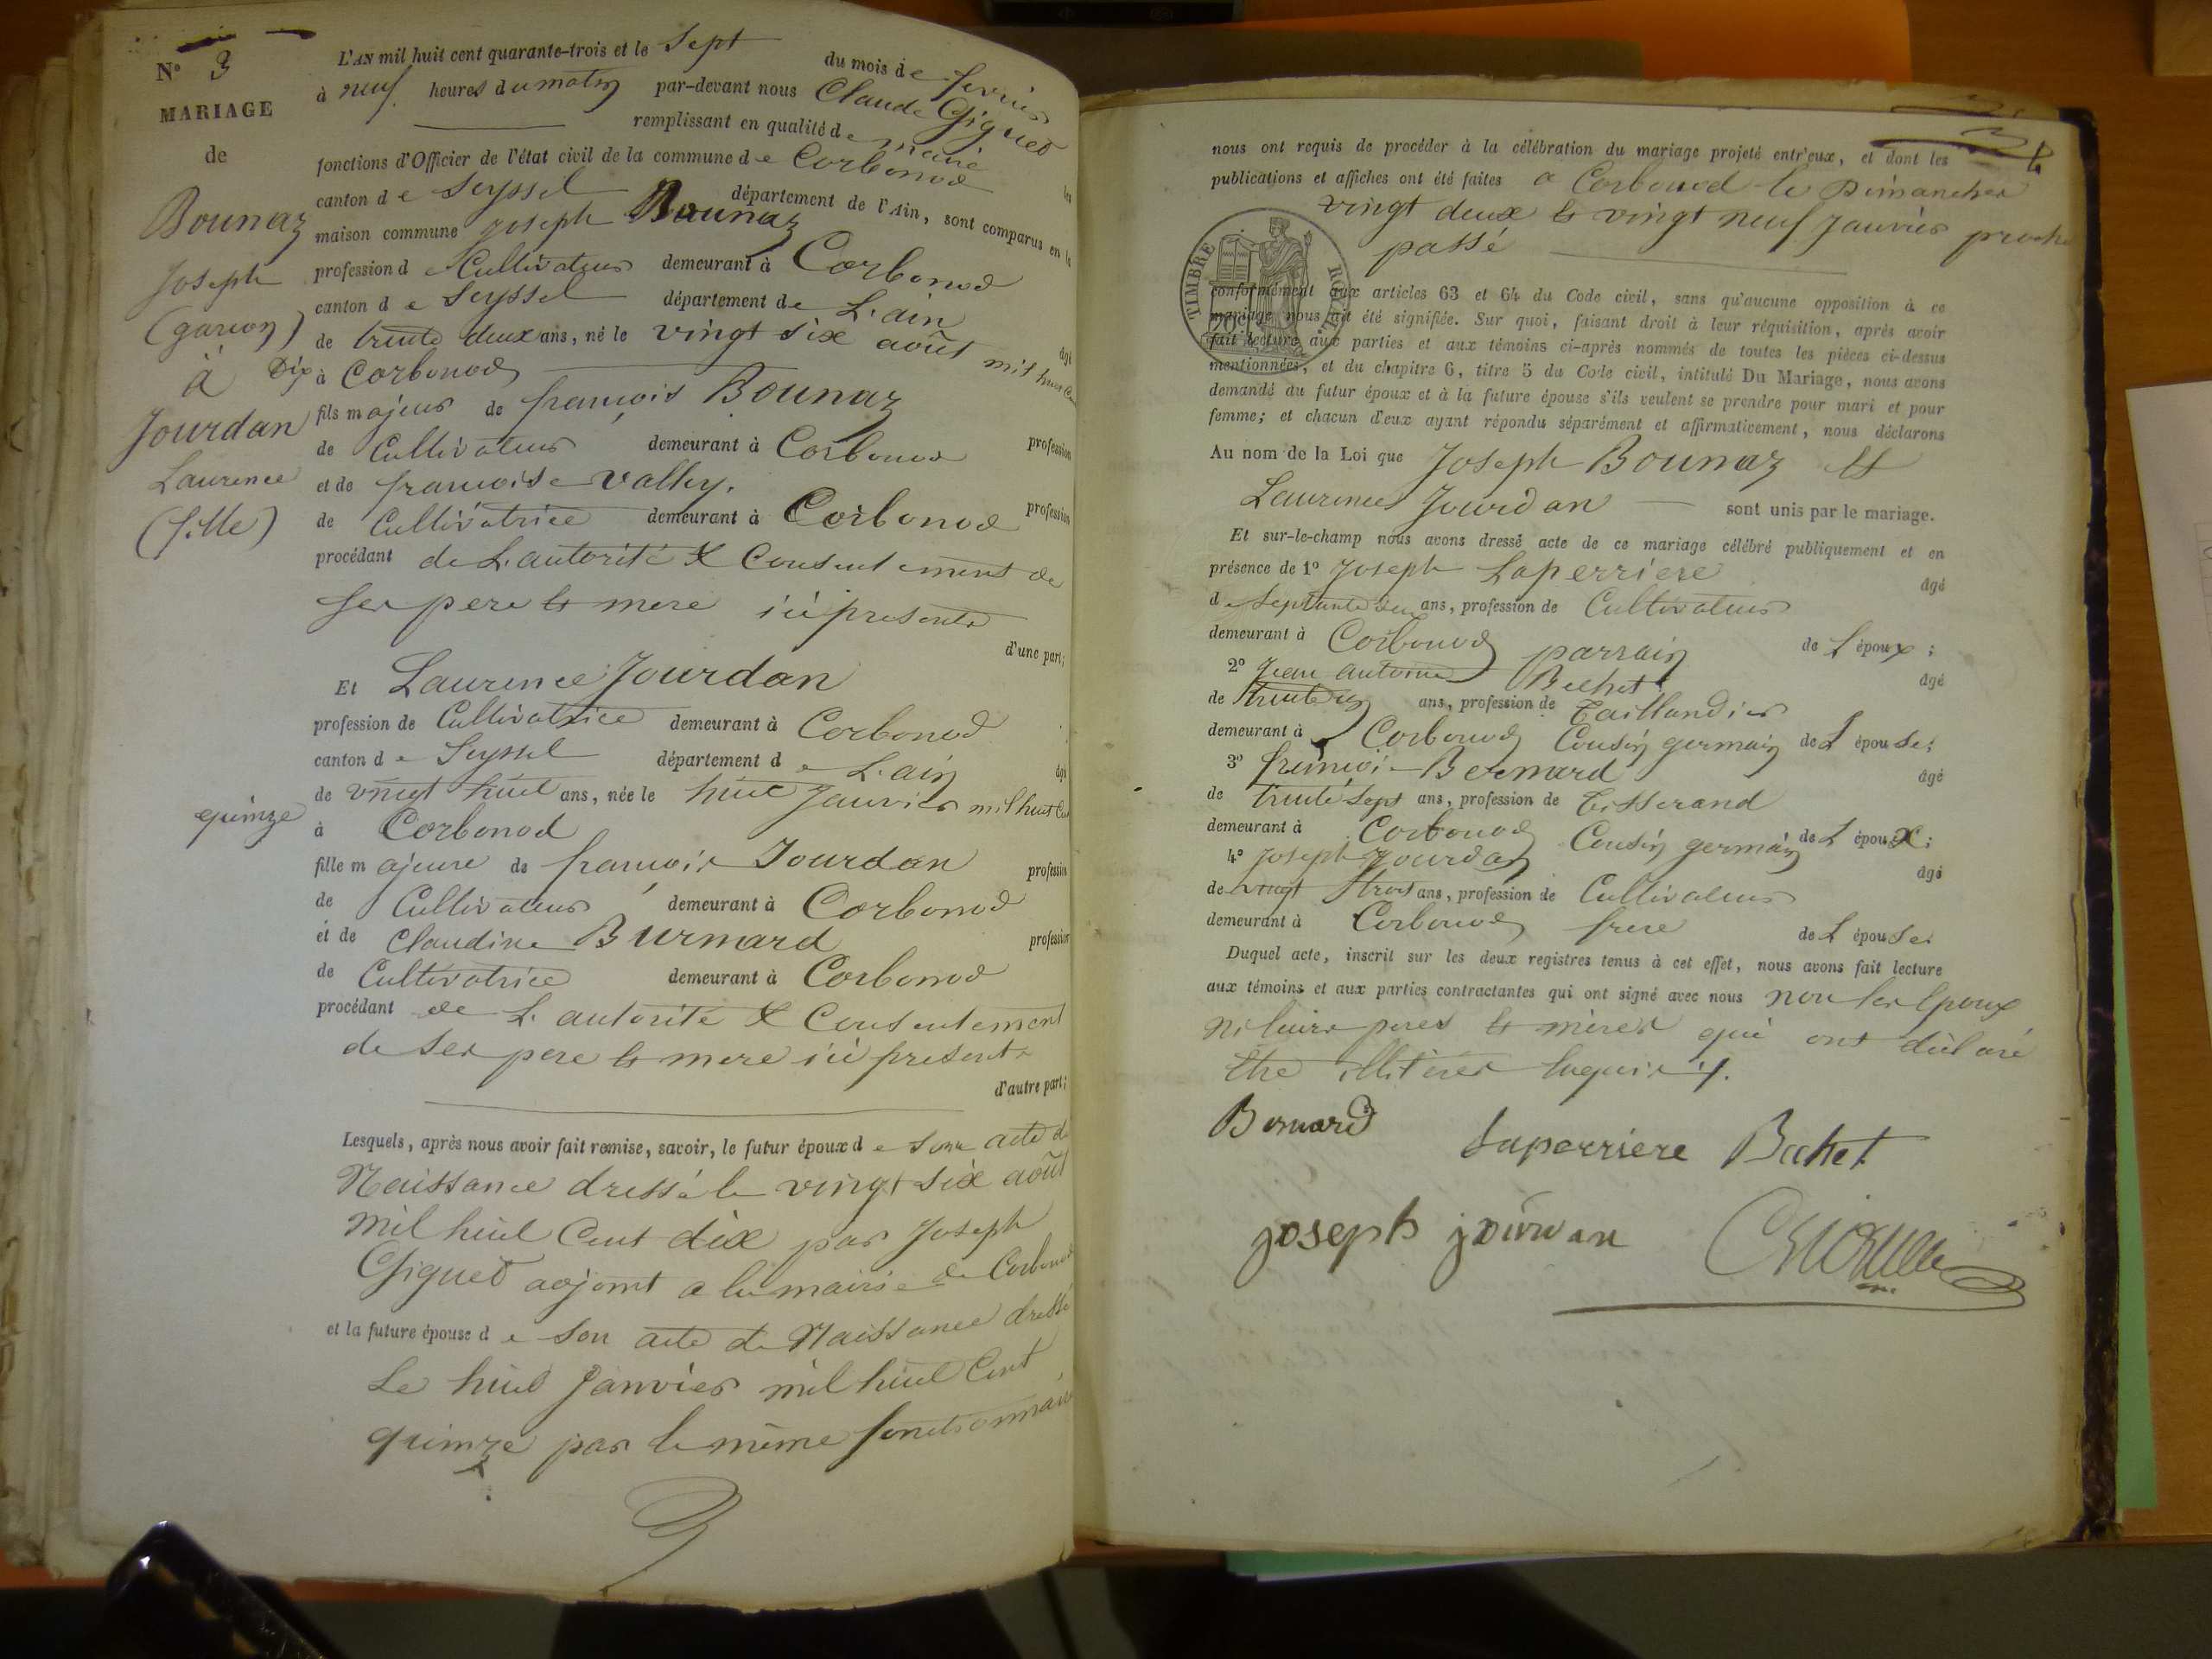 N° 3
MARIAGE
de
Bounaz
Joseph
(garçon)
à
Jourdan
Laurence
(fille)
L'AN mil huit cent quarante-trois et le sept du mois de fevrier
à neuf heures du matin par-devant nous Claude Giguet
remplissant en qualité de maire
fonctions d'Officier de l'état civil de la commune de Corbonod
canton de Seyssel département de l'Ain, sont comparus en la
maison commune joseph Bounaz
profession de Cultivateur demeurant à Corbonod
canton de Seyssel département de L'ain âgé
de trente deux ans, né le vingt six août mil huit Cent
Dix à Corbonod
fils majeur de françois Bounaz profession
de Cultivateur demeurant à Corbonod
et de françoise Vallhy. profession
de Cultivatrice demeurant à Corbonod
procédant de L'autorité & Consentement de
ses pere & mere ici presents
d'une part;
Et Laurence Jourdan
profession de Cultivatrice demeurant à Corbonod
canton de Seyssel département de L'ain âgé
de vingt huit ans, née le huit Janvier mil huit Cent
quinze à Corbonod
fille majeure de françois Jourdan profession
de Cultivateur demeurant à Corbonod
et de Claudine Burnard profession
de Cultivatrice demeurant à Corbonod
procédant de L'autorité & Consentement
de ses pere & mere ici presents
d'autre part;
Lesquels, après nous avoir fait remise, savoir, le futur époux de son acte de
Naissance dressé le vingt six août
mil huit Cent dix par Joseph
Giguet adjoint a la mairie de Corbonod
et la future épouse de son acte de Naissance dressé
Le huit Janvier mil huit Cent
quinze par le même fonctionnaire
4
nous ont requis de procéder à la célébration du mariage projeté entr'eux, et dont les
publications et affiches ont été faites a Corbonod les Dimanches
vingt deux & vingt neuf Janvier proche
passé
TIMBRE ROYAL
conformément aux articles 63 et 64 du Code civil, sans qu'aucune opposition à ce
mariage nous ait été signifiée. Sur quoi, faisant droit à leur réquisition, après avoir
fait lecture aux parties et aux témoins ci-après nommés de toutes les pièces ci-dessus
mentionnées, et du chapitre 6, titre 5 du Code civil, intitulé Du Mariage, nous avons
demandé au futur époux et à la future épouse s'ils veulent se prendre pour mari et pour
femme; et chacun d'eux ayant répondu séparément et affirmativement, nous déclarons
Au nom de la Loi que Joseph Bounaz &
Laurence Jourdan sont unis par le mariage.
Et sur-le-champ nous avons dressé acte de ce mariage célébré publiquement et en
présence de 1° Joseph Laperriere âgé
de ans, profession de Cultivateur
demeurant à Corbonod parrain de L'époux;
2° Jean antoine Bechet âgé
de ans, profession de Taillandier
demeurant à Corbonod Cousin germain de L'épouse;
3° françois Bernard âgé
de trente sept ans, profession de Tisserand
demeurant à Corbonod Cousin germain de L'époux;
4° Joseph Jourdan âgé
de vingt trois ans, profession de Cultivateur
demeurant à Corbonod frere de L'épouse.
Duquel acte, inscrit sur les deux registres tenus à cet effet, nous avons fait lecture
aux témoins et aux parties contractantes qui ont signé avec nous non les Epoux
ni leurs peres & mères qui ont déclaré
être illitérés Enquis
Bernard Laperriere Bechet
joseph jourdan Giguet